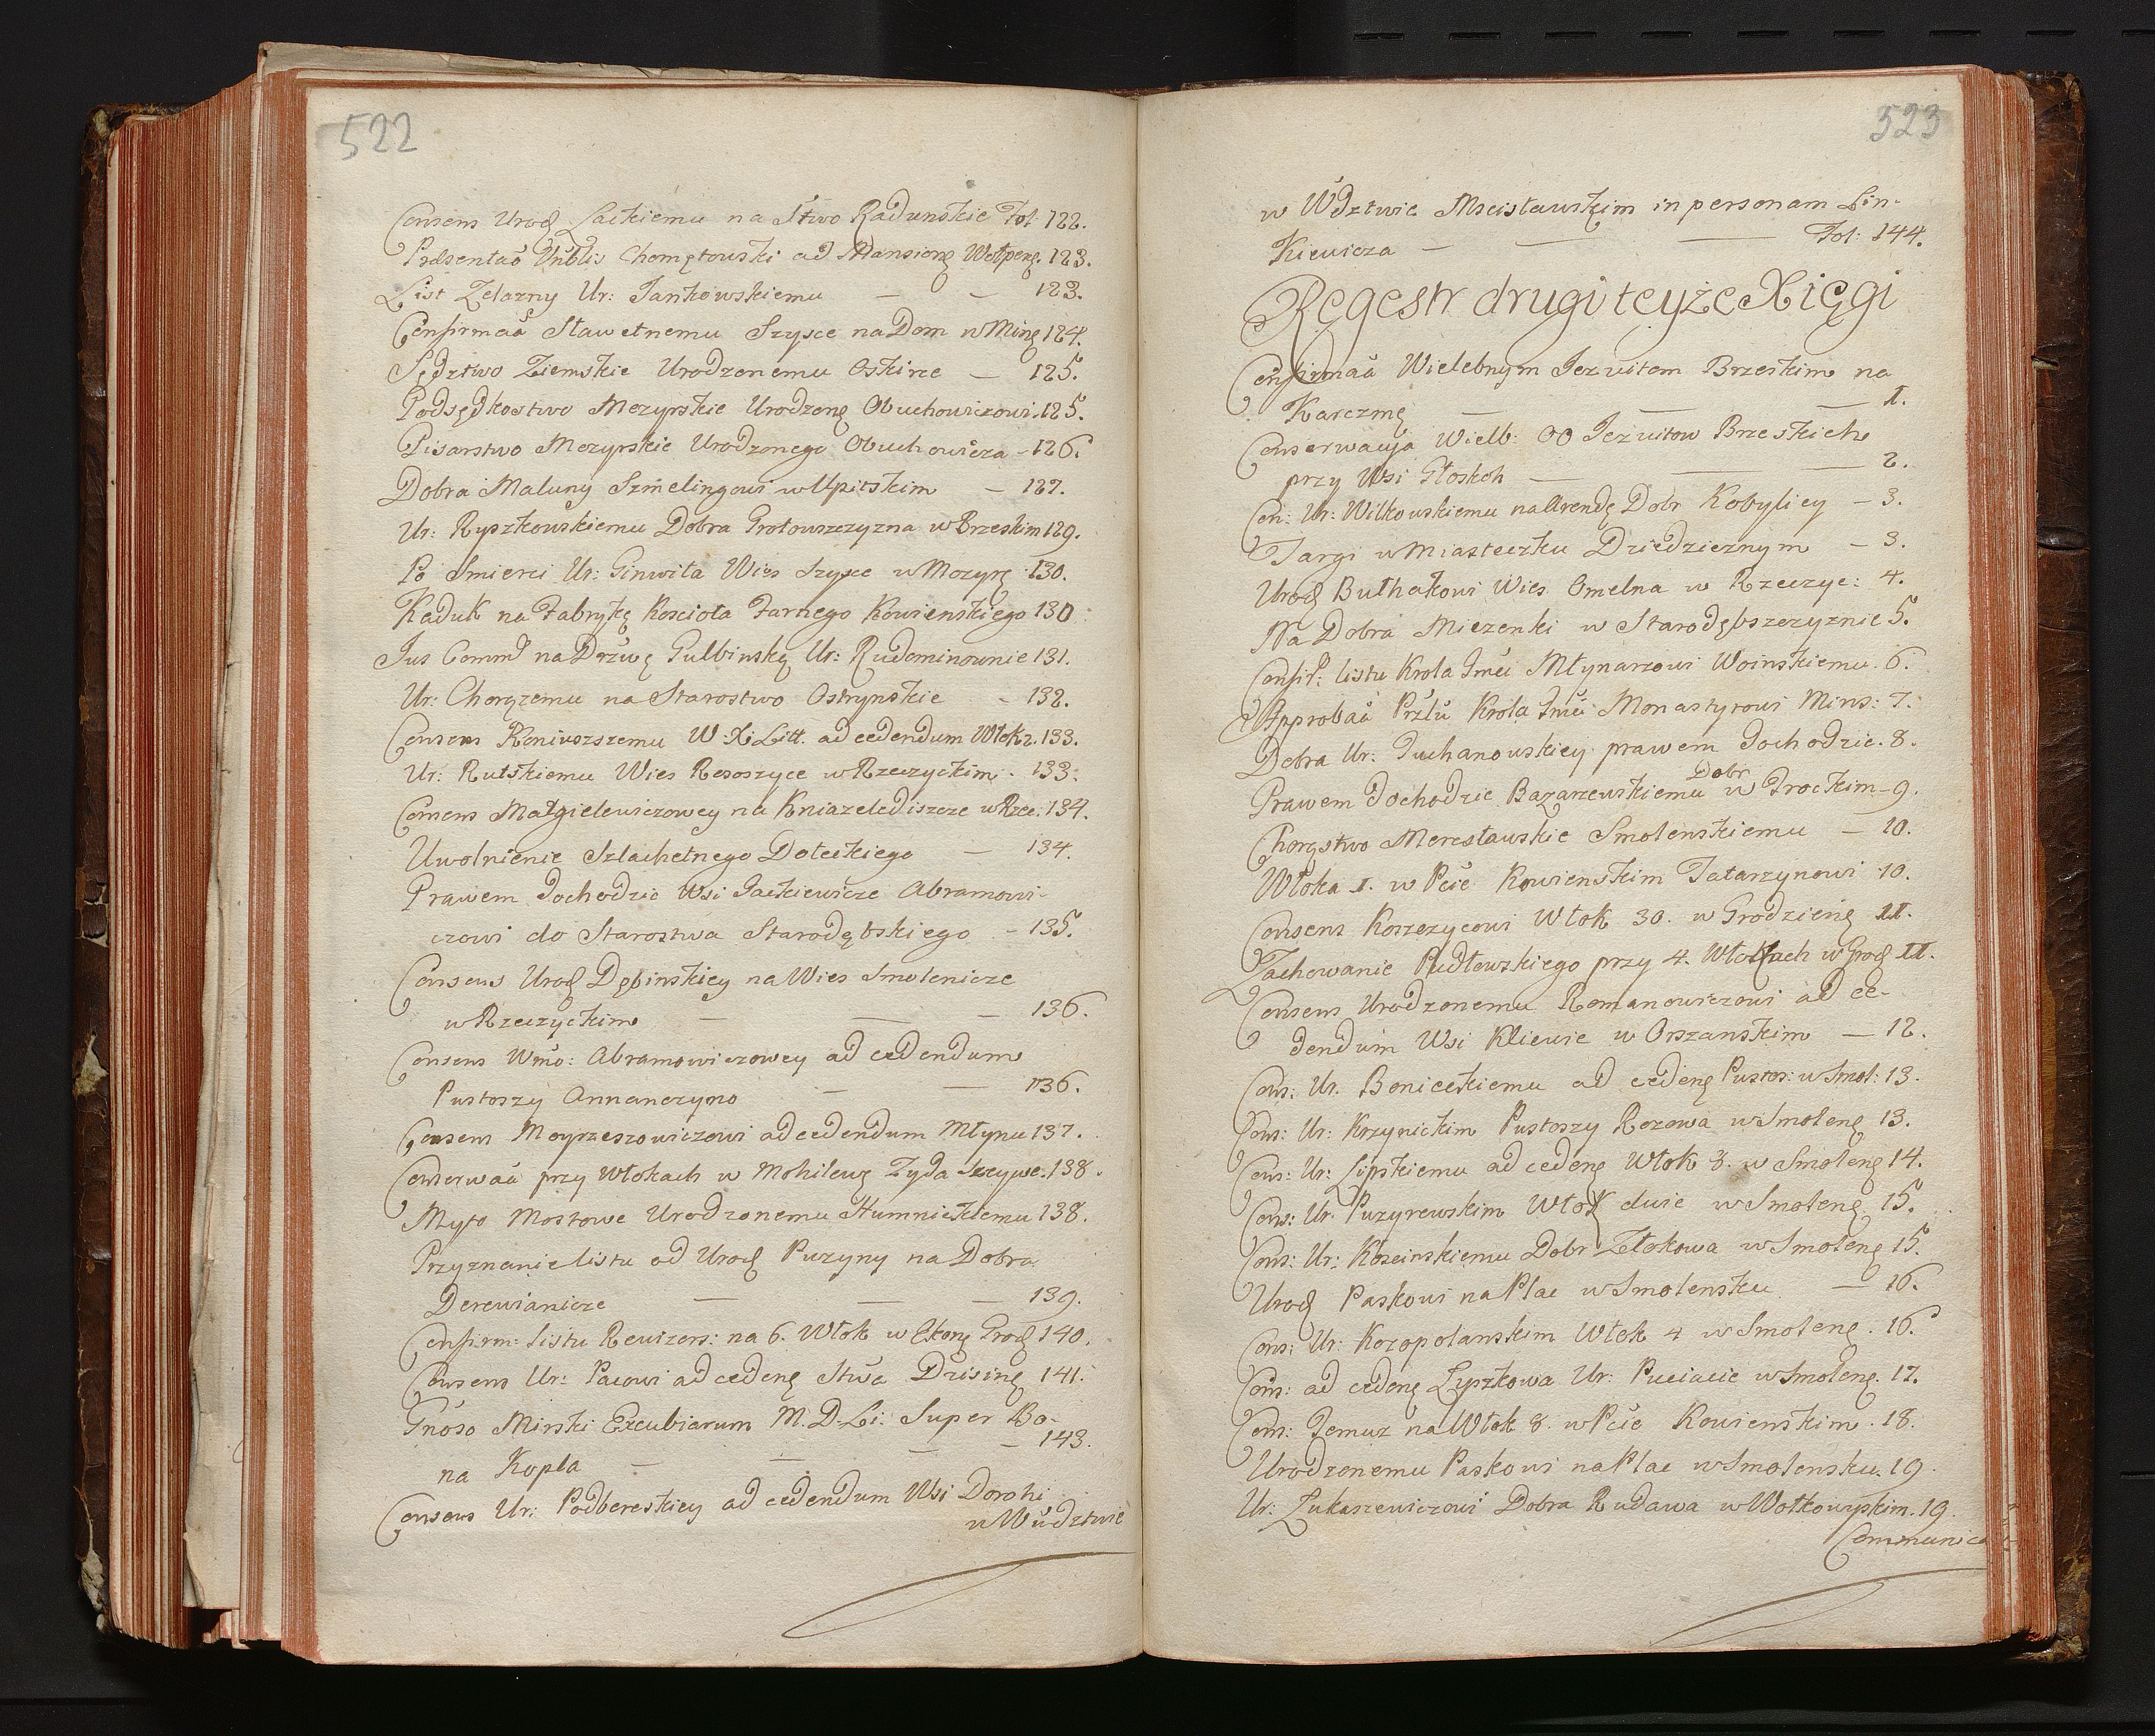 522
Consens Urodz Lackiemu na Stwo Radunskie Fol 122.
Præsentaõ Vnblis Chomętowski ad Mansionę Wołpenę. 123.
List Zelazny Ur: Jankowskiemu — — 123.
Confirmaã Sławetnemu Szysce na Dom w Minę 124.
Sędztwo Ziemskie Urodzonemu Oskirce — 125.
Podsędkostwo Mozyrskie Urodzonę Obuchowiczowi. 125.
Pisarstwo Mozyrskie Urodzonego Obuchowicza - 126.
Dobra Maluny Szmelingowi w Upitskim — 127.
Ur: Ryszkowskiemu Dobra Protruszczyzna w Brzeskim 129.
Po Smierci Ur: Ginwiła Wies Szysce w Mozyrę 130.
Kaduk na Fabrykę Koscioła Farnego Kowienskiego 130
Jus Comm̃ na Drz̃wę Gulbinskę Ur: Rudominownie 131.
Ur: Chorązemu na Starostwo Ostrynskie - 132.
Consens Koniuszszemu W: X: Litt. ad cedendum Włok 2. 133.
Ur: Rutskiemu Wies Rososzyce w Rzeczyckim. 133.
Consens Małgielewiczowey na Kniazelediszcze w Rze: 134.
Uwolnienie Szlachetnego Doleckiego — 134.
Prawem dochodzic Wsi Jackiewicze Abramowi-
czowi do Starostwa Starodębskiego - 135.
Consens Urodz Dębinskiey na Wies Smolenicze
w Rzeczyckim — — — 136.
Consens Wmo: Abramowiczowey ad cedendum
Pustoszy Annanczyno — — 136.
Consens Moyrzeszowiczowi ad cedendum Młynu 137.
Conserwaã przy Włokach w Mohilewę Zyda 138.
Myto Mostowe Urodzonemu Humnickiemu 138.
Przyznanie listu od Urodz Puzyny na Dobra
Derewianicze — — — 139.
Confirm: listu Rewizors: na 6. Włok w Ekonę Grodz 140.
Consens Ur: Pacowi ad cedenę Stwa Drisinę 141.
Gnoso Mirski Excubiarum M. D. Li: Super Bo-
na Kopla — — — — 143.
Consens Ur: Podbereskiey ad cedendum Wsi Dorohi
w Wudztwie
523
w Wdztwie Mscisławskim in personam Lin-
kiewicza — — — Fol: 144.
Regestr drugi teyże Xięgi
Confirmaã Wielebnym Jezuitom Brzeskim na
Karczmę — — — 1.
Conserwacya Wielb: OO Jezuitow Brzeskich
przy Wsi Głoskch — — — 2.
Con: Ur: Wilkowskiemu na Arendę Dobr Kobyliey - 3.
Targi w Miasteczku Dziedzicznym — 3.
Urodz Bułhakowi Wies Omelna w Rzeczyc: 4.
Na Dobra Miezenki w Starodębszczyznie 5.
Confir: listu Krola Jmći Młynarzowi Woinskiemu. 6.
Approbaã Przlu Krola Jmći Monastyrowi Mins: 7.
Dobra Ur: Suchanowskiey prawem dochodzic. 8.
Dobr
Prawem dochodzic Bazarzewskiemu w Trockim - 9.
Chorąstwo Meresławskie Smolenskiemu — 10.
Włoka 1. w Pcie Kowienskim Tatarzynowi 10.
Consens Koszczycowi Włok 30. w Grodzienę 11.
Zachowanie Pudłowskiego przy 4. Włokach w Grodz 11.
Consens Urodzonemu Romanowiczowi ad ce-
dendum Wsi Kliewie w Orszanskim — 12.
Cons: Ur. Boniceckiemu ad cedenę Pustos: w Smol: 13.
Cons: Ur: Krzynickim Pustoszy Rozowa w Smolenę 13.
Cons: Ur: Lipskiemu ad cedenę Włok 8. w Smolenę 14.
Cons: Ur. Puzyrewskim Włok dwie w Smolenę 15.
Cons: Ur: Koscinskiemu Dobr Zełokowa w Smolenę 15.
Urodz Paskowi na Plac w Smolensku — 16.
Cons: Ur: Koropolanskim Włok 4 w Smolenę. 16.
Cons: ad cedenę Lyszkowa Ur: Puciacie w Smolenę. 17.
Cons: Jemuz na Włok 8. w Pcie Kowienskim. 18.
Urodzonemu Paskowi na Plac w Smolensku. 19.
Ur: Łukaszewiczowi Dobra Rudawa w Wołkowyskim. 19.